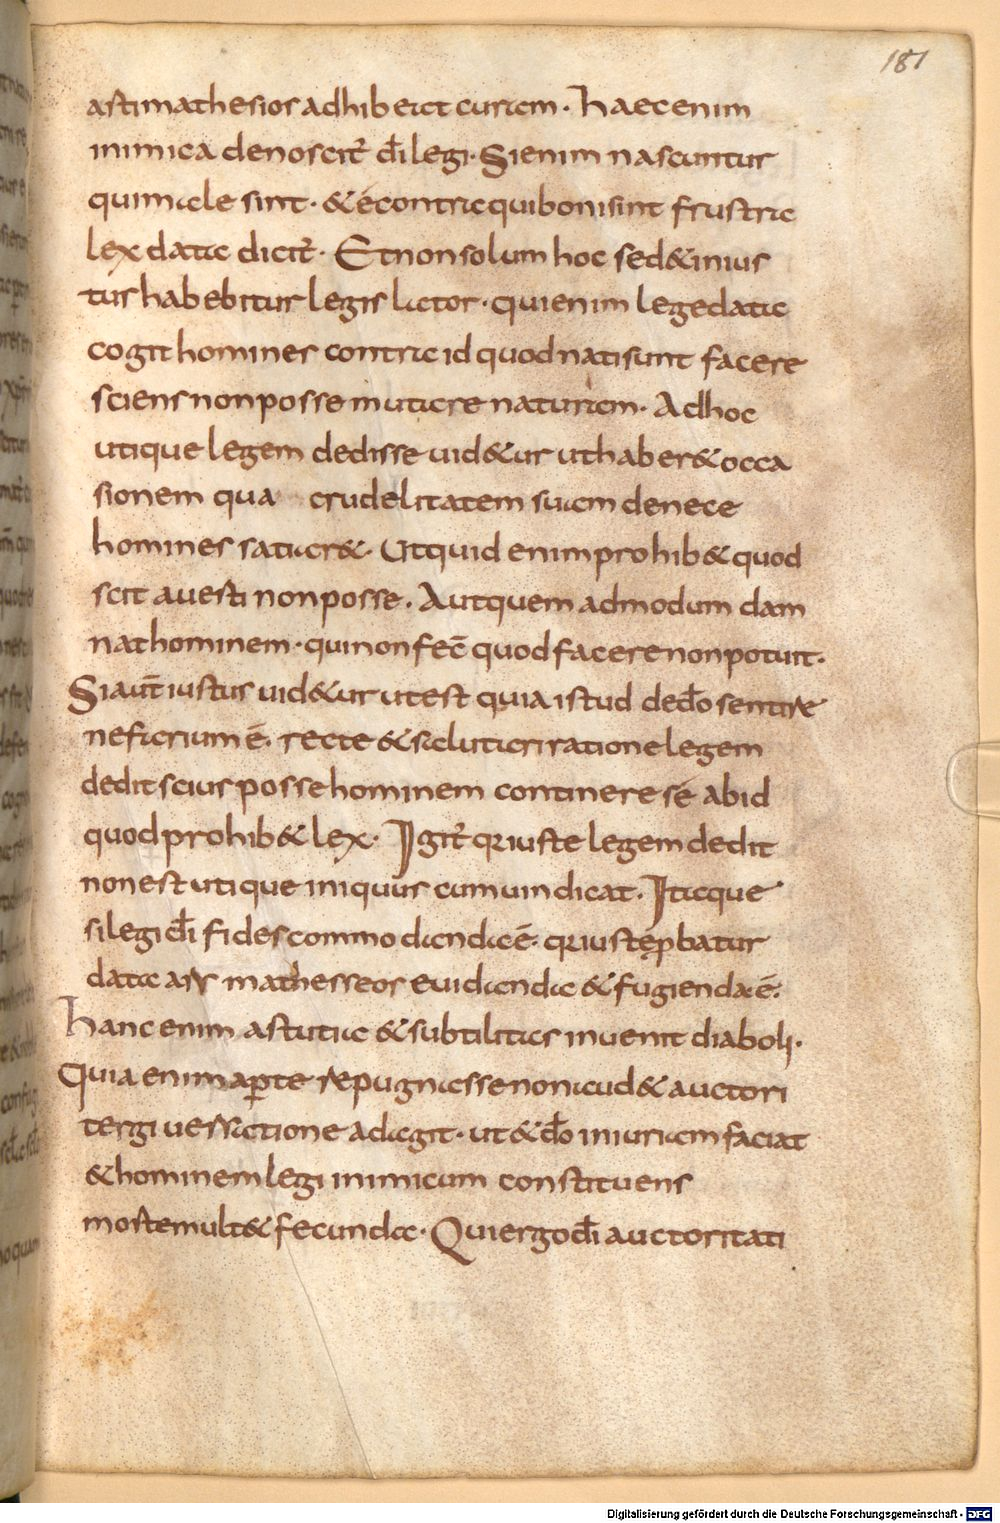 181
asti mathesios adhibeat curam. Haec enim
inimica denoscit̄ d̄i legi. Si enim nascuntur
qui male sint. & e contra qui boni sint frustra
lex data dicit̄. Et non solum hoc sed & inius
tus habebitur legis lator. qui enim lege data
cogit homines contra id quod nati sunt facere
sciens non posse mutare naturam. Ad hoc
utique legem dedisse uid&ur ut haber& occa
sionem qua crudelitatem suam de nece
homines satiar&. Ut quid enim prohib& quod
scit auesti non posse. Aut quem admodum dam
nat hominem. qui non fec̄ quod facere non potuit.
Si aut̄ iustus uid&ur ut est quia istud de d̄o sentire
nefarium ē. recte & salutari ratione legem
dedit scius posse hominem continere se ab id
quod prohib& lex. Igit̄ q̄ iuste legem dedit
non est utique iniquus cum uindicat. Itaque
si legi d̄i fides commodanda ē. q̄ iuste ꝓbatur
data ars mathesseos euidanda & fugienda ē.
Hanc enim astutia & subtilitas inuenit diaboli.
Quia enim aꝑte repugnasse non aud& auctori
tergiuersatione ad agit. ut & d̄o iniuriam faciat
& hominem legi inimicum constituens
morte mult& fecunda. Qui ergo d̄i auctoritati
Digitalisierung gefördert durch die Deutsche Forschungsgemeinschaft - DFG